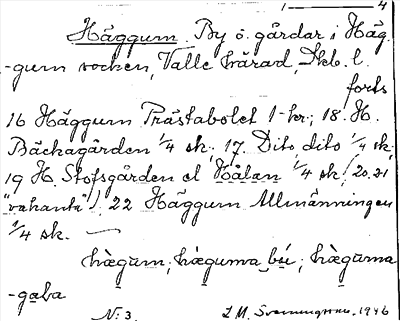 1 — 4
Häggum. By o. gårdar i Häg-
gum socken, Valle härad, Skb. l.
forts
16 Häggum Prästabolet 1 hr; 18 H.
Bäckagården 1/4 sk. 17. Dito dito 1/4 sk.
19 H. Stofsgården el Hålan 1/4 sk (20. 21
"vakanta"). 22 Häggum Allmänningen
1/4 sk. —
hægum; hæguma bú; hæguma
-gaba
N: 3. 1946